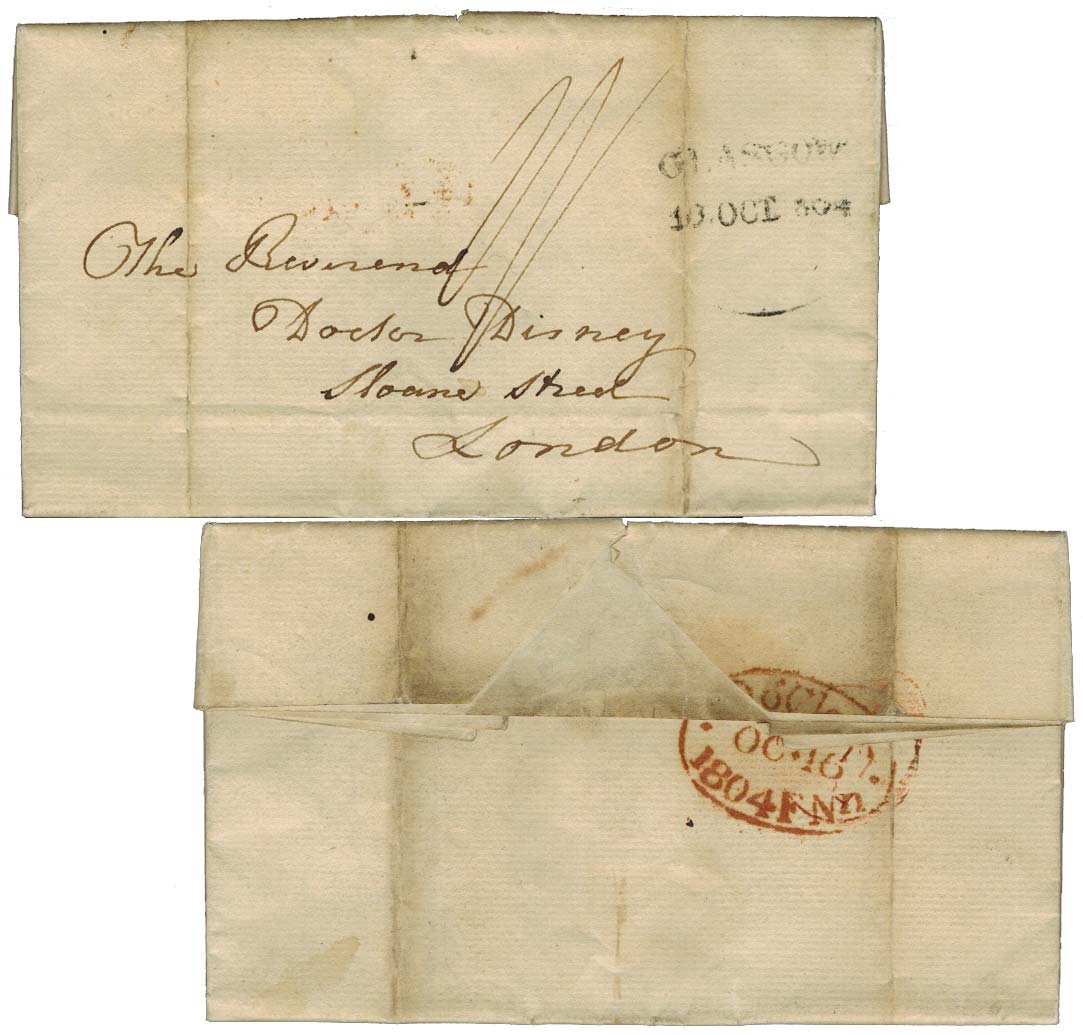 GLASGOW
10 OCT 804
The Reverend
Doctor Disney
Sloane Street
London
OC.16
1804 F Nn